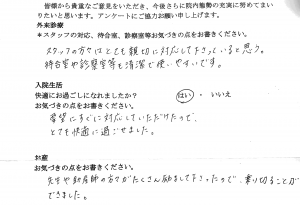 皆様から貴重なご意見をいただき、今後さらに院内態勢の充実に努めてまい
りたいと思います。アンケートにご協力お願い申し上げます。
外来診療
*スタッフの対応、待合室、診察室等お気づきの点をお書きください。
スタッフの方々はとても親切に対応して下さっていると思う。
待合室や診察室等も清潔で使いやすいです。
入院生活
快適にお過ごしになれましたか? はい ・ いいえ
お気づきの点をお書きください。
希望にすぐに対応していただけたので、
とても快適に過ごせました。
お産
お気づきの点をお書きください。
先生や助産師の方々がたくさん励まして下さったので、乗り切ることが
できました。